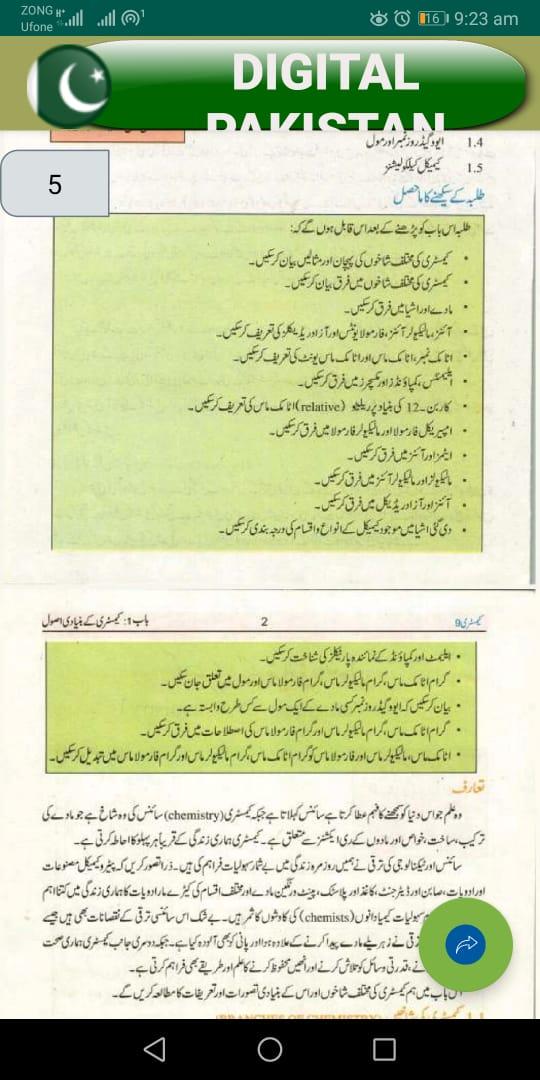 ZONG
Ufone
16
9:23 am
DIGITAL
PAKISTAN
5
1.4 ایووگیڈروز نمبر اور مول
1.5 کیمیکل کیلکولیشنز
طلبہ کے سیکھنے کا ماحصل
طلبہ اس باب کو پڑھنے کے بعد اس قابل ہوں گے کہ:
• کیمسٹری کی مختلف شاخوں کی پہچان اور مثالیں بیان کرسکیں۔
• کیمسٹری کی مختلف شاخوں میں فرق بیان کرسکیں۔
• مادے اور اشیا میں فرق کرسکیں۔
• آئنز، مالیکیولر آئنز، فارمولا یونٹس اور آزاد ریڈیکلز کی تعریف کرسکیں۔
• اٹامک نمبر، اٹامک ماس اور اٹامک ماس یونٹ کی تعریف کرسکیں۔
• ایلیمنٹس، کمپاؤنڈز اور مکسچرز میں فرق کرسکیں۔
• کاربن۔12 کی بنیاد پر ریلیٹو (relative) اٹامک ماس کی تعریف کرسکیں۔
• امپیریکل فارمولا اور مالیکیولر فارمولا میں فرق کرسکیں۔
• ایٹمز اور آئنز میں فرق کرسکیں۔
• مالیکیولز اور مالیکیولر آئنز میں فرق کرسکیں۔
• آئنز اور آزاد ریڈیکل میں فرق کرسکیں۔
• دی گئی اشیا میں موجود کیمیکل کے انواع و اقسام کی درجہ بندی کرسکیں۔
کیمسٹری 9
2
باب 1: کیمسٹری کے بنیادی اصول
• ایلیمنٹ اور کمپاؤنڈ کے نمائندہ پارٹیکلز کی شناخت کرسکیں۔
• گرام اٹامک ماس، گرام مالیکیولر ماس، گرام فارمولا ماس اور مول میں تعلق جان سکیں۔
• بیان کرسکیں کہ ایووگیڈروز نمبر کسی مادے کے ایک مول سے کس طرح وابستہ ہے۔
• گرام اٹامک ماس، گرام مالیکیولر ماس اور گرام فارمولا ماس کی اصطلاحات میں فرق کرسکیں۔
• اٹامک ماس، مالیکیولر ماس اور فارمولا ماس کو گرام اٹامک ماس، گرام مالیکیولر ماس اور گرام فارمولا ماس میں تبدیل کرسکیں۔
تعارف
وہ علم جو اس دنیا کو سمجھنے کا فہم عطا کرتا ہے سائنس کہلاتا ہے جبکہ کیمسٹری (chemistry) سائنس کی وہ شاخ ہے جو مادے کی
ترکیب، ساخت، خواص اور مادوں کے ری ایکشنز سے متعلق ہے۔ کیمسٹری ہماری زندگی کے تقریباً ہر پہلو کا احاطہ کرتی ہے۔
سائنس اور ٹیکنالوجی کی ترقی نے ہمیں روزمرہ زندگی میں بے شمار سہولیات فراہم کی ہیں۔ ذرا تصور کریں کہ پیٹروکیمیکل مصنوعات
اور ادویات، صابن اور ڈیٹرجنٹ، کاغذ اور پلاسٹک، پینٹ و رنگین مادے اور مختلف اقسام کی کیڑے مار ادویات کا ہماری زندگی میں کتنا اہم
سہولیات کیمیادانوں (chemists) کی کاوشوں کا ثمر ہیں۔ بے شک اس سائنسی ترقی کے نقصانات بھی ہیں جیسے
ترقی نے زہریلے مادے پیدا کرنے کے علاوہ ہوا اور پانی کو بھی آلودہ کیا ہے۔ جبکہ دوسری جانب کیمسٹری ہماری صحت
نے، قدرتی وسائل کو تلاش کرنے اور انھیں محفوظ کرنے کا علم اور طریقے بھی فراہم کرتی ہے۔
اس باب میں ہم کیمسٹری کی مختلف شاخوں اور اس کے بنیادی تصورات اور تعریفات کا مطالعہ کریں گے۔
1.1 کیمسٹری کی شاخیں (BRANCHES OF CHEMISTRY)